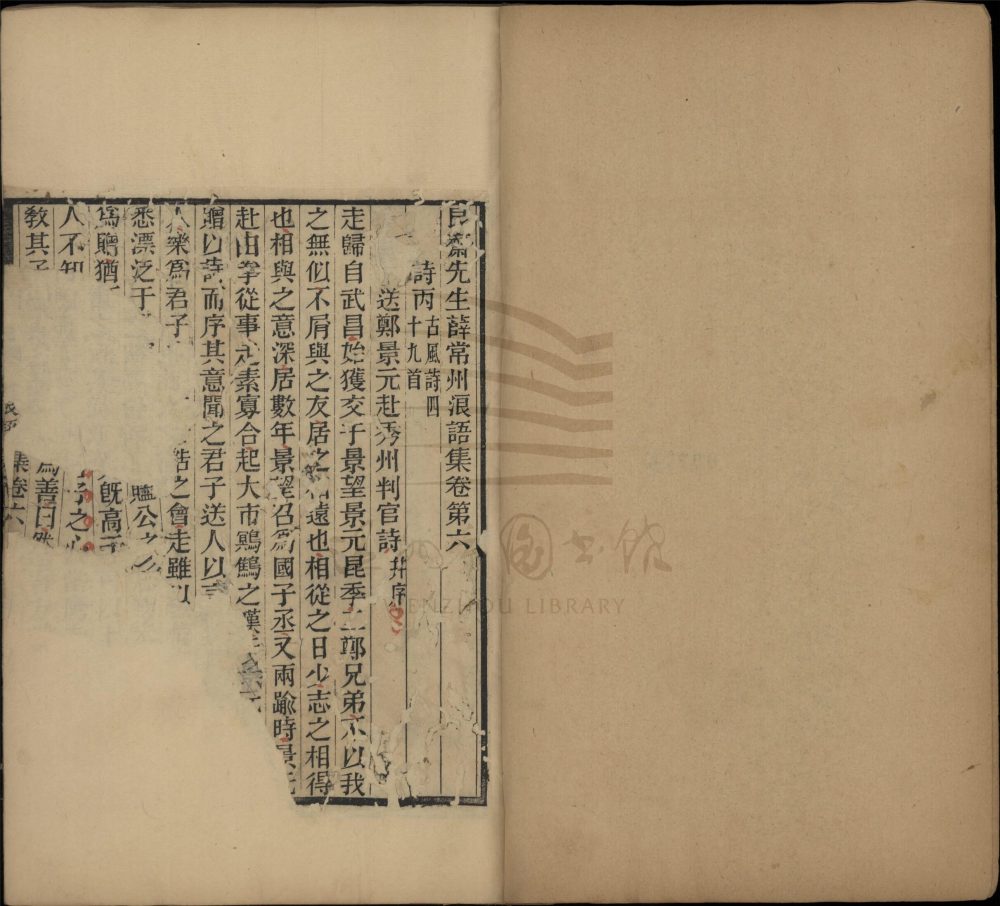 艮齋先生薛常州浪語集卷第六
詩丙 古風詩四
十九首
送鄭景元赴秀州判官詩 并序
走歸自武昌始獲交于景望景元昆季二鄭兄弟不以我
之無似不屑與之友居之 遠也相從之日少志之相得
也相與之意深居數年景望召爲國子丞又兩踰時景元
赴由拳從事走素寡合起大市鷃鵠之嘆
贈以詩而序其意聞之君子送人以言
人樂爲君子 之會走雖以
悉漂泛于 驢公之
爲贈猶 旣高
人不知 子之心
教其子 爲善日
集卷六
圖書館
WENZHOU LIBRARY